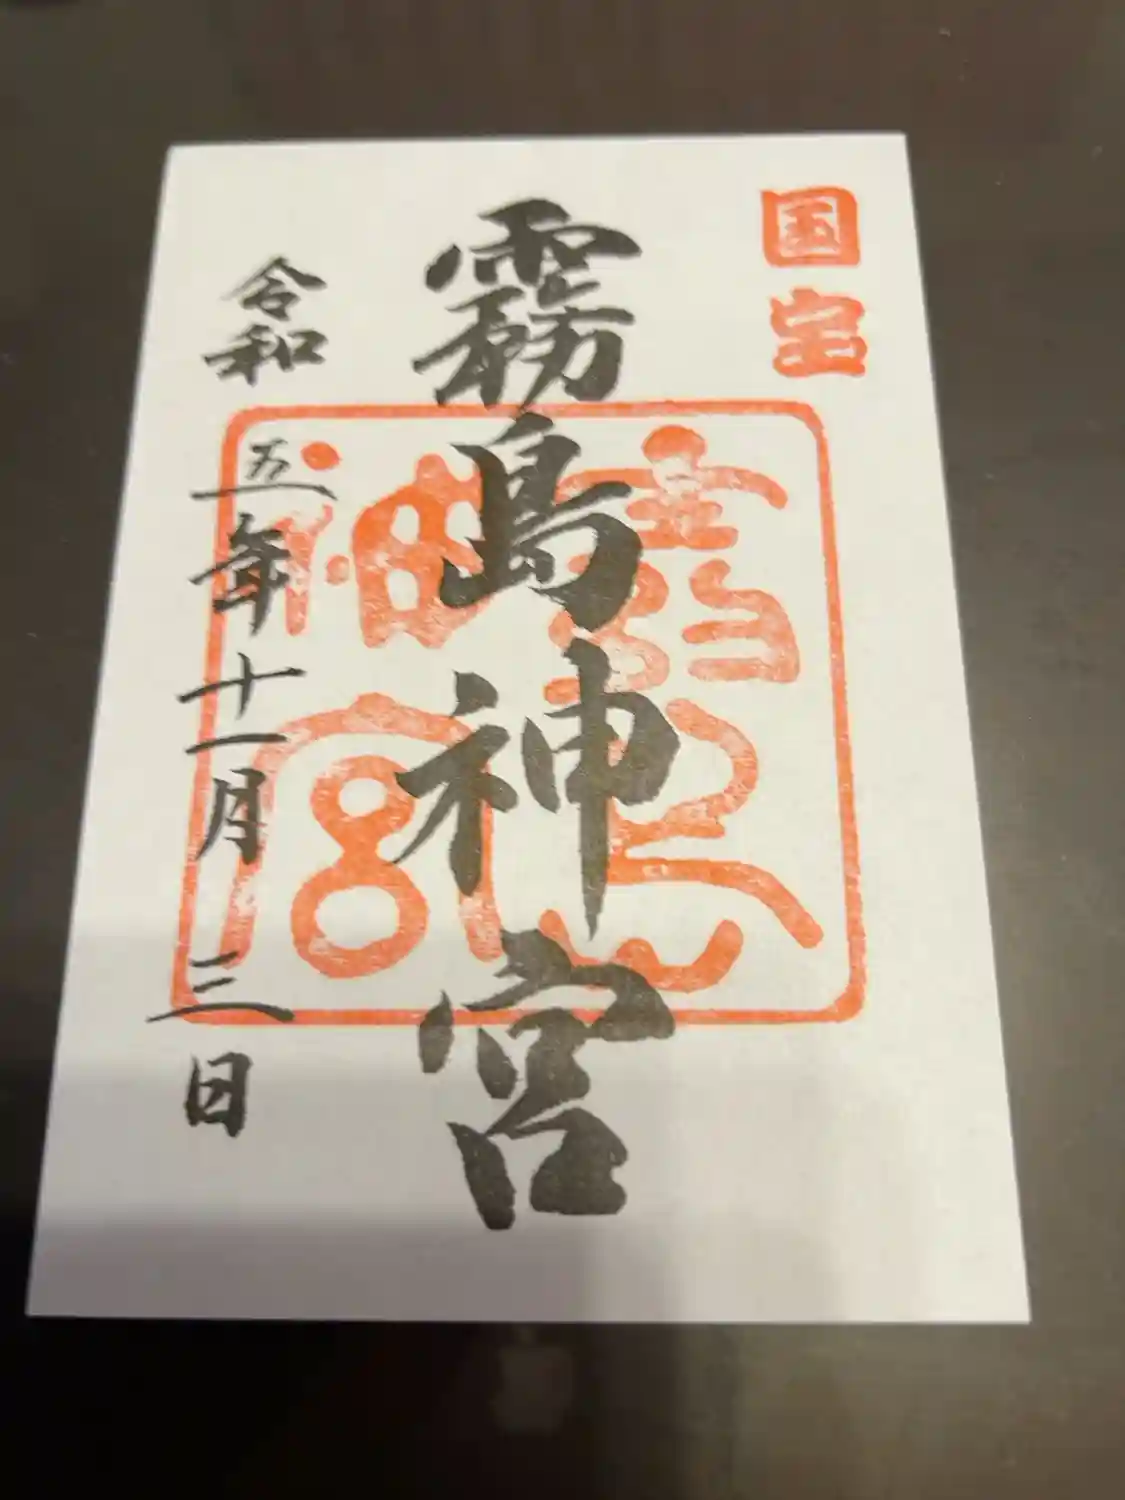 国宝
霧島神宮
令和五年十一月三日